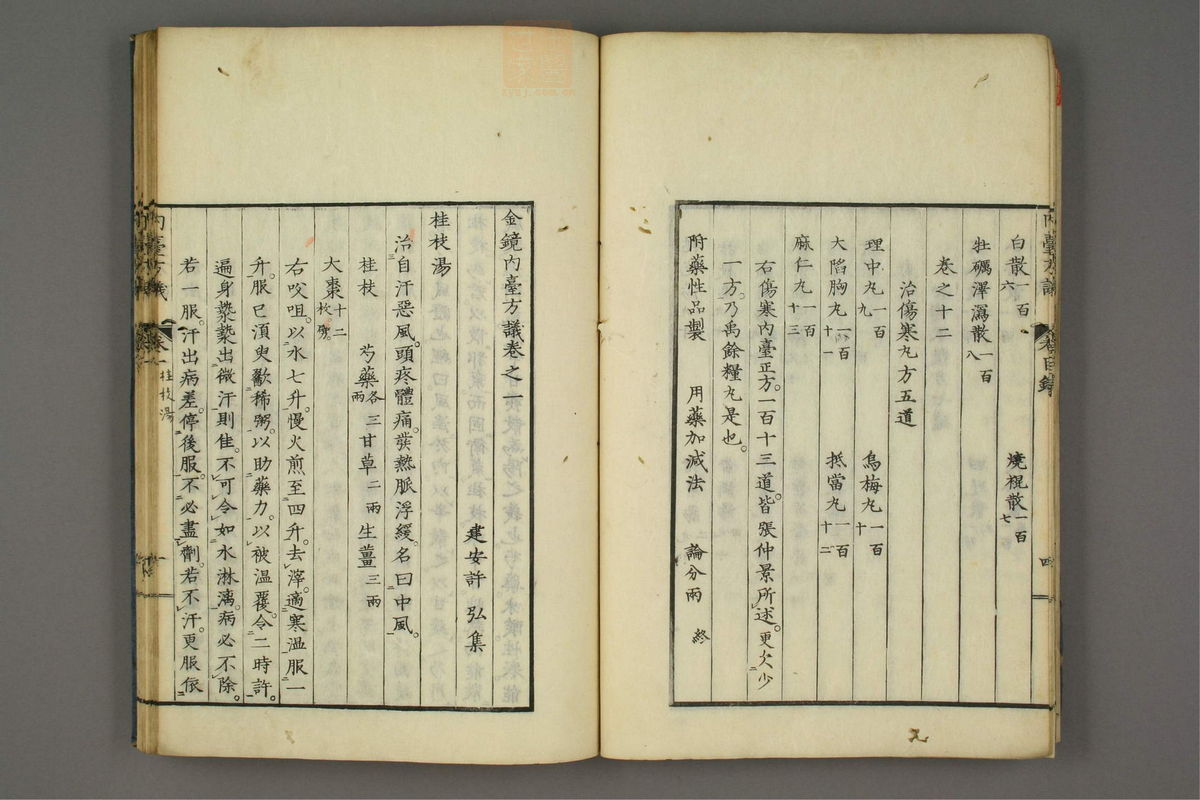 白散一百六　燒裩散一百七
牡礪澤瀉散一百八
卷之十二
治傷寒丸方五道
理中丸一百九　烏梅丸一百十
大陷胸丸一百十一　抵當丸一百十二
麻仁丸一百十三
右傷寒內臺正方一百十三道皆張仲景所述更欠少
一方乃禹餘糧丸是也
附藥性品製　用藥加減法　論分兩　終
金鏡內臺方議卷之一
建安許　弘集
桂枝湯
治自汗惡風頭疼體痛發熱脈浮緩名曰中風
桂枝　芍藥各三兩　甘草二兩　生薑三兩
大棗十二枚劈
右㕮咀以水七升慢火煎至四升去滓適寒溫服一
升服已須臾歠稀粥以助藥力以被温覆令二時許
遍身漐漐出微汗則佳不可令如水淋漓病必不除
若一服汗出病差停後服不必盡劑若不汗更服依
桂枝湯